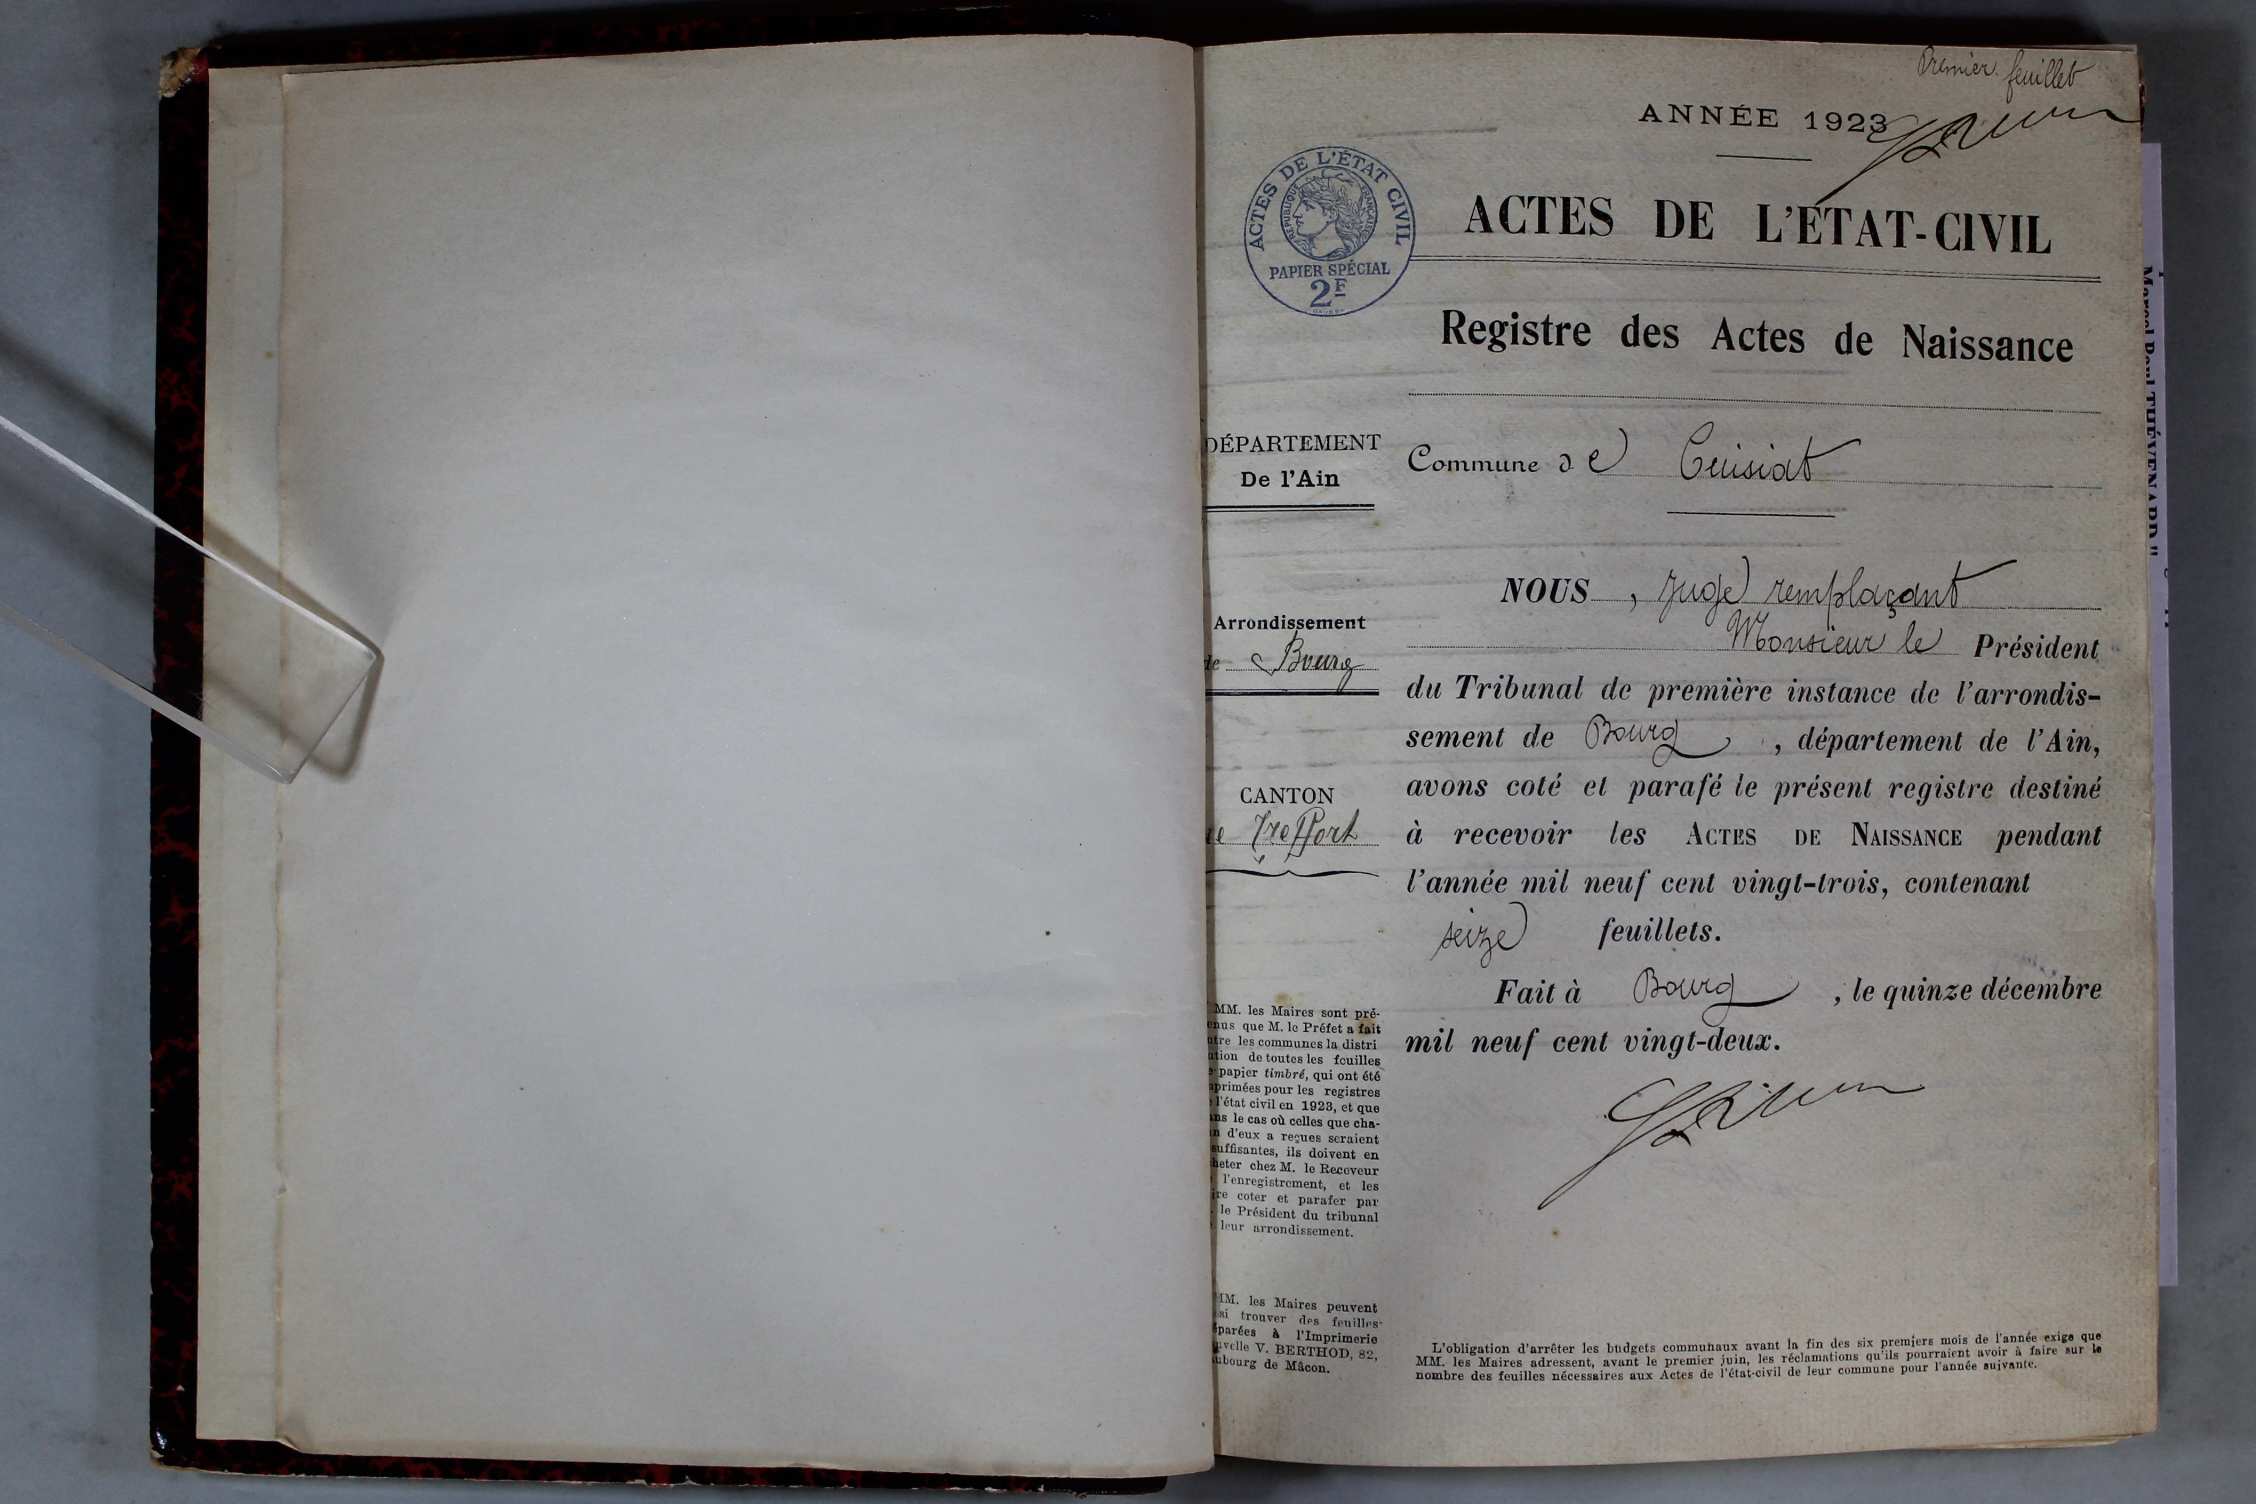 Premier feuillet
ANNÉE 1923
ACTES DE L'ÉTAT CIVIL
RÉPUBLIQUE FRANÇAISE
PAPIER SPÉCIAL
2F
ACTES DE L'ÉTAT-CIVIL
Registre des Actes de Naissance
DÉPARTEMENT
De l'Ain
Arrondissement
de Bourg
CANTON
de Treffort
MM. les Maires sont pré-
enus que M. le Préfet a fait
ntre les communes la distri
ution de toutes les feuilles
e papier timbré, qui ont été
mprimées pour les registres
e l'état civil en 1923, et que
ans le cas où celles que cha-
n d'eux a reçues seraient
suffisantes, ils doivent en
heter chez M. le Receveur
l'enregistrement, et les
ire coter et parafer par
. le Président du tribunal
leur arrondissement.
MM. les Maires peuvent
si trouver des feuilles
éparées à l'Imprimerie
uvelle V. BERTHOD, 82,
ubourg de Mâcon.
Commune de Cuisiat
NOUS, Juge remplaçant
Monsieur le Président
du Tribunal de première instance de l'arrondis-
sement de Bourg, département de l'Ain,
avons coté et parafé le présent registre destiné
à recevoir les ACTES DE NAISSANCE pendant
l'année mil neuf cent vingt-trois, contenant
seize feuillets.
Fait à Bourg, le quinze décembre
mil neuf cent vingt-deux.
L'obligation d'arrêter les budgets communaux avant la fin des six premiers mois de l'année exige que
MM. les Maires adressent, avant le premier juin, les réclamations qu'ils pourraient avoir à faire sur le
nombre des feuilles nécessaires aux Actes de l'état-civil de leur commune pour l'année suivante.
Marcel Paul THÉVENARD"